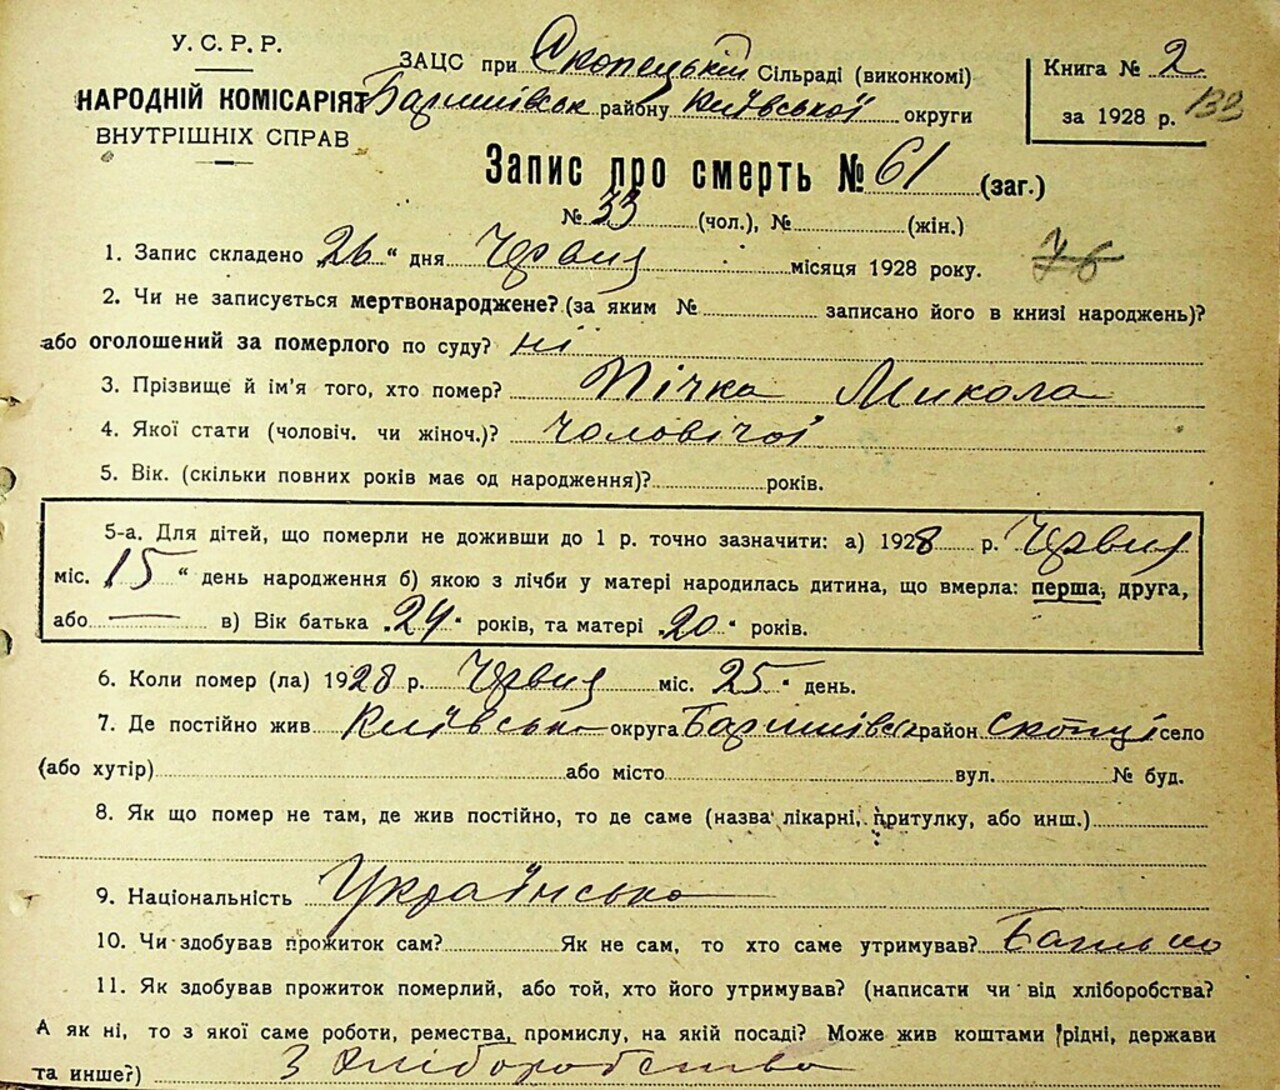 У. С. Р. Р.
НАРОДНІЙ КОМІСАРІЯТ
ВНУТРІШНІХ СПРАВ
ЗАЦС при Скопецькій Сільраді (виконкомі)
Баришівськ району Київської округи
Книга № 2
за 1928 р. 132
Запис про смерть № 61 (заг.)
№ 33 (чол.), № (жін.)
1. Запис складено „26“ дня Червня місяця 1928 року. 76
2. Чи не записується мертвонароджене? (за яким № записано його в книзі народжень)?
або оголошений за померлого по суду? ні
3. Прізвище й ім’я того, хто помер? Пічка Микола
4. Якої стати (чоловіч. чи жіноч.)? чоловічої
5. Вік. (скільки повних років має од народження)? років.
5-а. Для дітей, що померли не доживши до 1 р. точно зазначити: а) 1928 р. Червня
міс. „15“ день народження б) якою з лічби у матері народилась дитина, що вмерла: перша, друга,
або — в) Вік батька „24“ років, та матері „20“ років.
6. Коли помер (ла) 1928 р. Червня міс. 25“ день.
7. Де постійно жив Київська округа Баришівськ район Скопці село
(або хутір) або місто вул. № буд.
8. Як що помер не там, де жив постійно, то де саме (назва лікарні, притулку, або инш.)
9. Національність Українська
10. Чи здобував прожиток сам? Як не сам, то хто саме утримував? Батько
11. Як здобував прожиток померлий, або той, хто його утримував? (написати чи від хліборобства?
А як ні, то з якої саме роботи, ремества, промислу, на якій посаді? Може жив коштами рідні, держави
та инше?) З Хліборобства